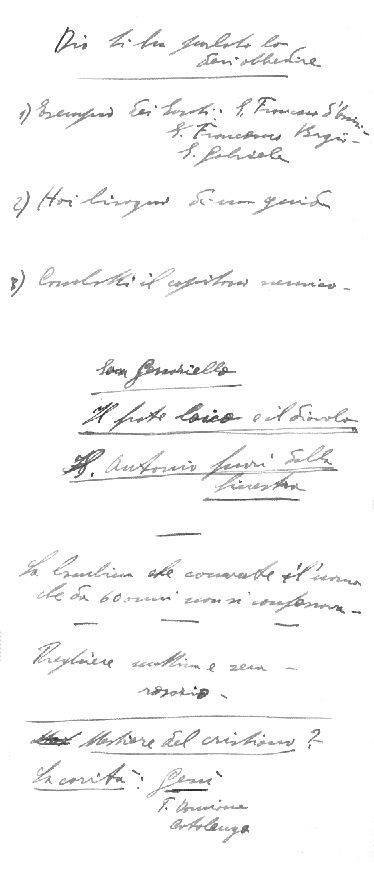 Dio ti ha parlato lo
devi obbedire
1) Esempio dei Santi: S. Francesco d'Assisi
S. Francesco
S. Gabriele
2) Hai bisogno di una guida
3) Combatti il capitano nemico -
San Gerardiello
Il frate laico e il diavolo
S. Antonio fuori dalla
finestra
La bambina che converte il nonno
che da 60 anni non si confessava -
Preghiere mattina e sera -
rosario -
Mestiere del cristiano ?
La carità : Gesù
Cottolengo